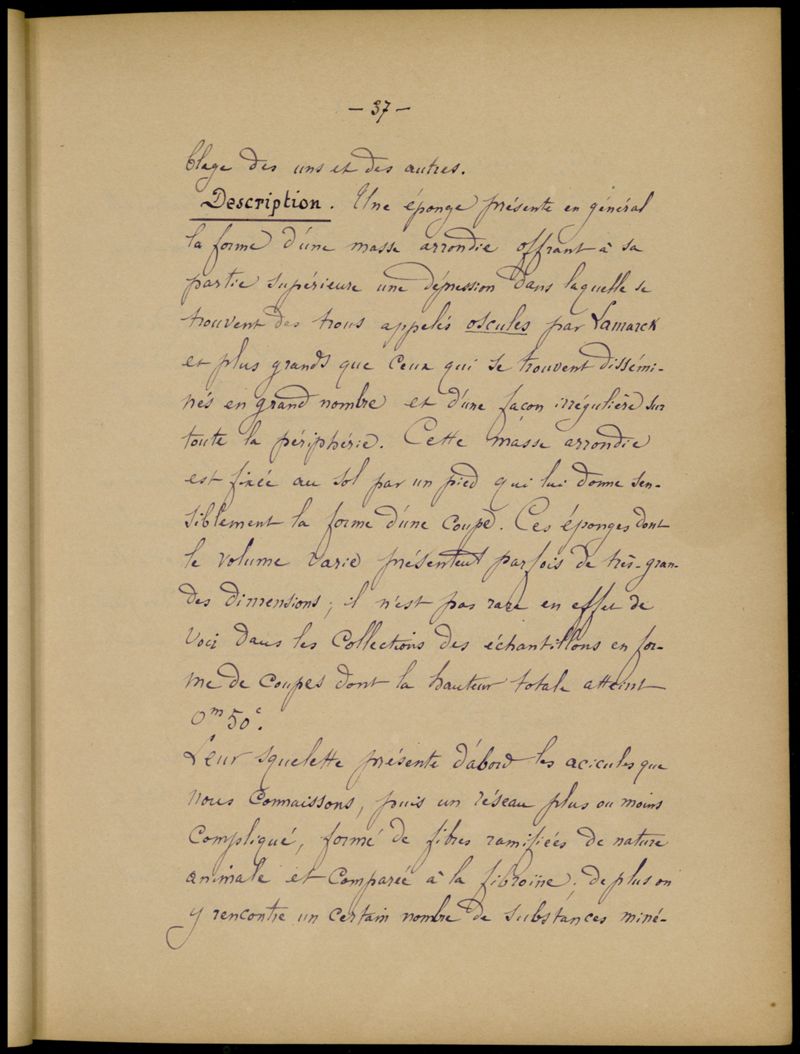 — 37 —
blage des uns et des autres.
Description. Une éponge présente en général
la forme d'une masse arrondie offrant à sa
partie supérieure une dépression dans laquelle se
trouvent des trous appelés oscules par Lamarck
et plus grands que ceux qui se trouvent dissémi-
nés en grand nombre et d'une façon irrégulière sur
toute la périphérie. Cette masse arrondie
est fixée au sol par un pied qui lui donne sen-
siblement la forme d'une coupe. Ces éponges dont
le volume varie présentent parfois de très-gran-
des dimensions ; il n'est pas rare en effet de
voir dans les collections des échantillons en for-
me de coupes dont la hauteur totale atteint
0m 50c.
Leur squelette présente d'abord les acicules que
nous connaissons, puis un réseau plus ou moins
compliqué, formé de fibres ramifiées de nature
animale et comparée à la fibroïne ; de plus on
y rencontre un certain nombre de substances miné-